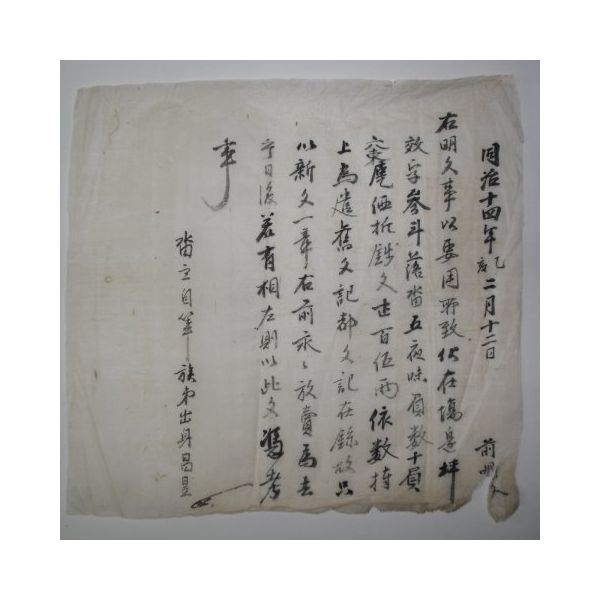 同治十四年乙亥二月十二日 前明文
右明文事以要用所致伏在 坪
效字參斗落畓五夜味負數十負
庫乙價折錢文 百伍兩依數捧
上為遣舊文記都文記在餘故只
以新文一章右前永永放賣為去
乎日後若有相左則以此文憑考
事
畓主自筆族弟出身昌